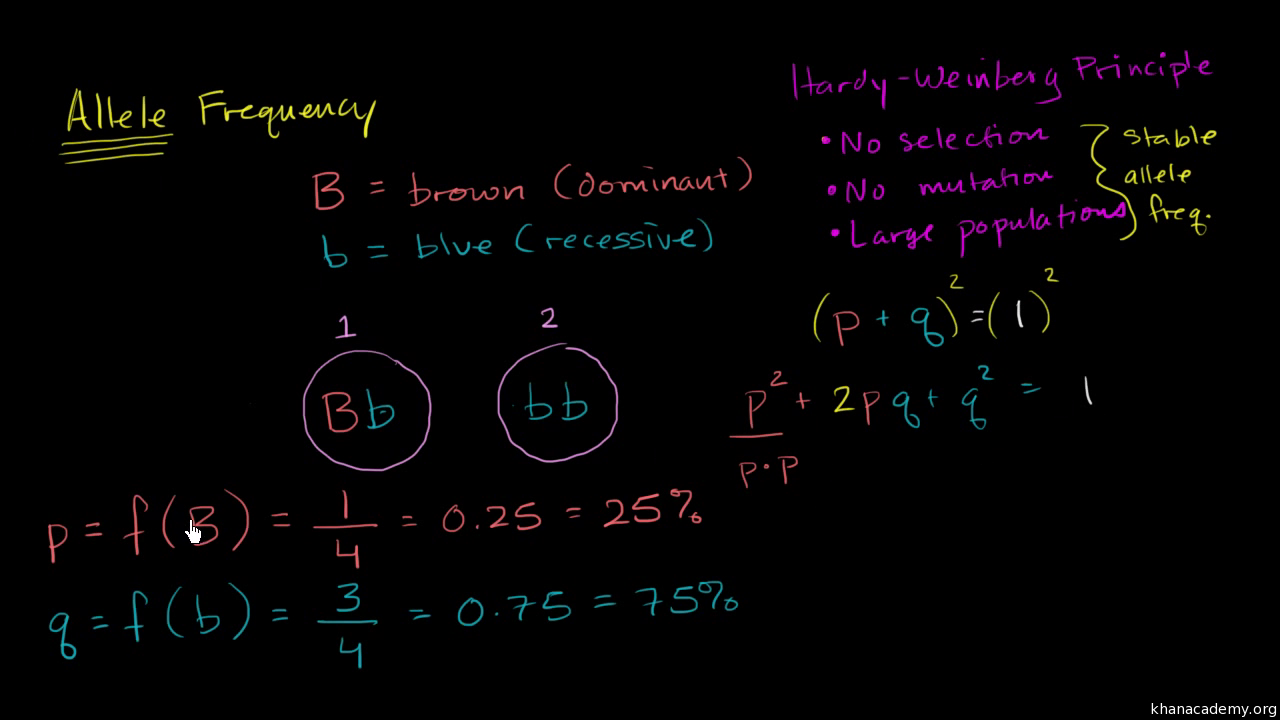 Allele Frequency
B = brown (dominant)
b = blue (recessive)
1 2
Bb bb
p = f(B) = 1/4 = 0.25 = 25%
q = f(b) = 3/4 = 0.75 = 75%
Hardy-Weinberg Principle
• No selection
• No mutation
• Large populations
} stable
allele
freq.
(p + q)² = (1)²
p² + 2pq + q² = 1
p·p
khanacademy.org